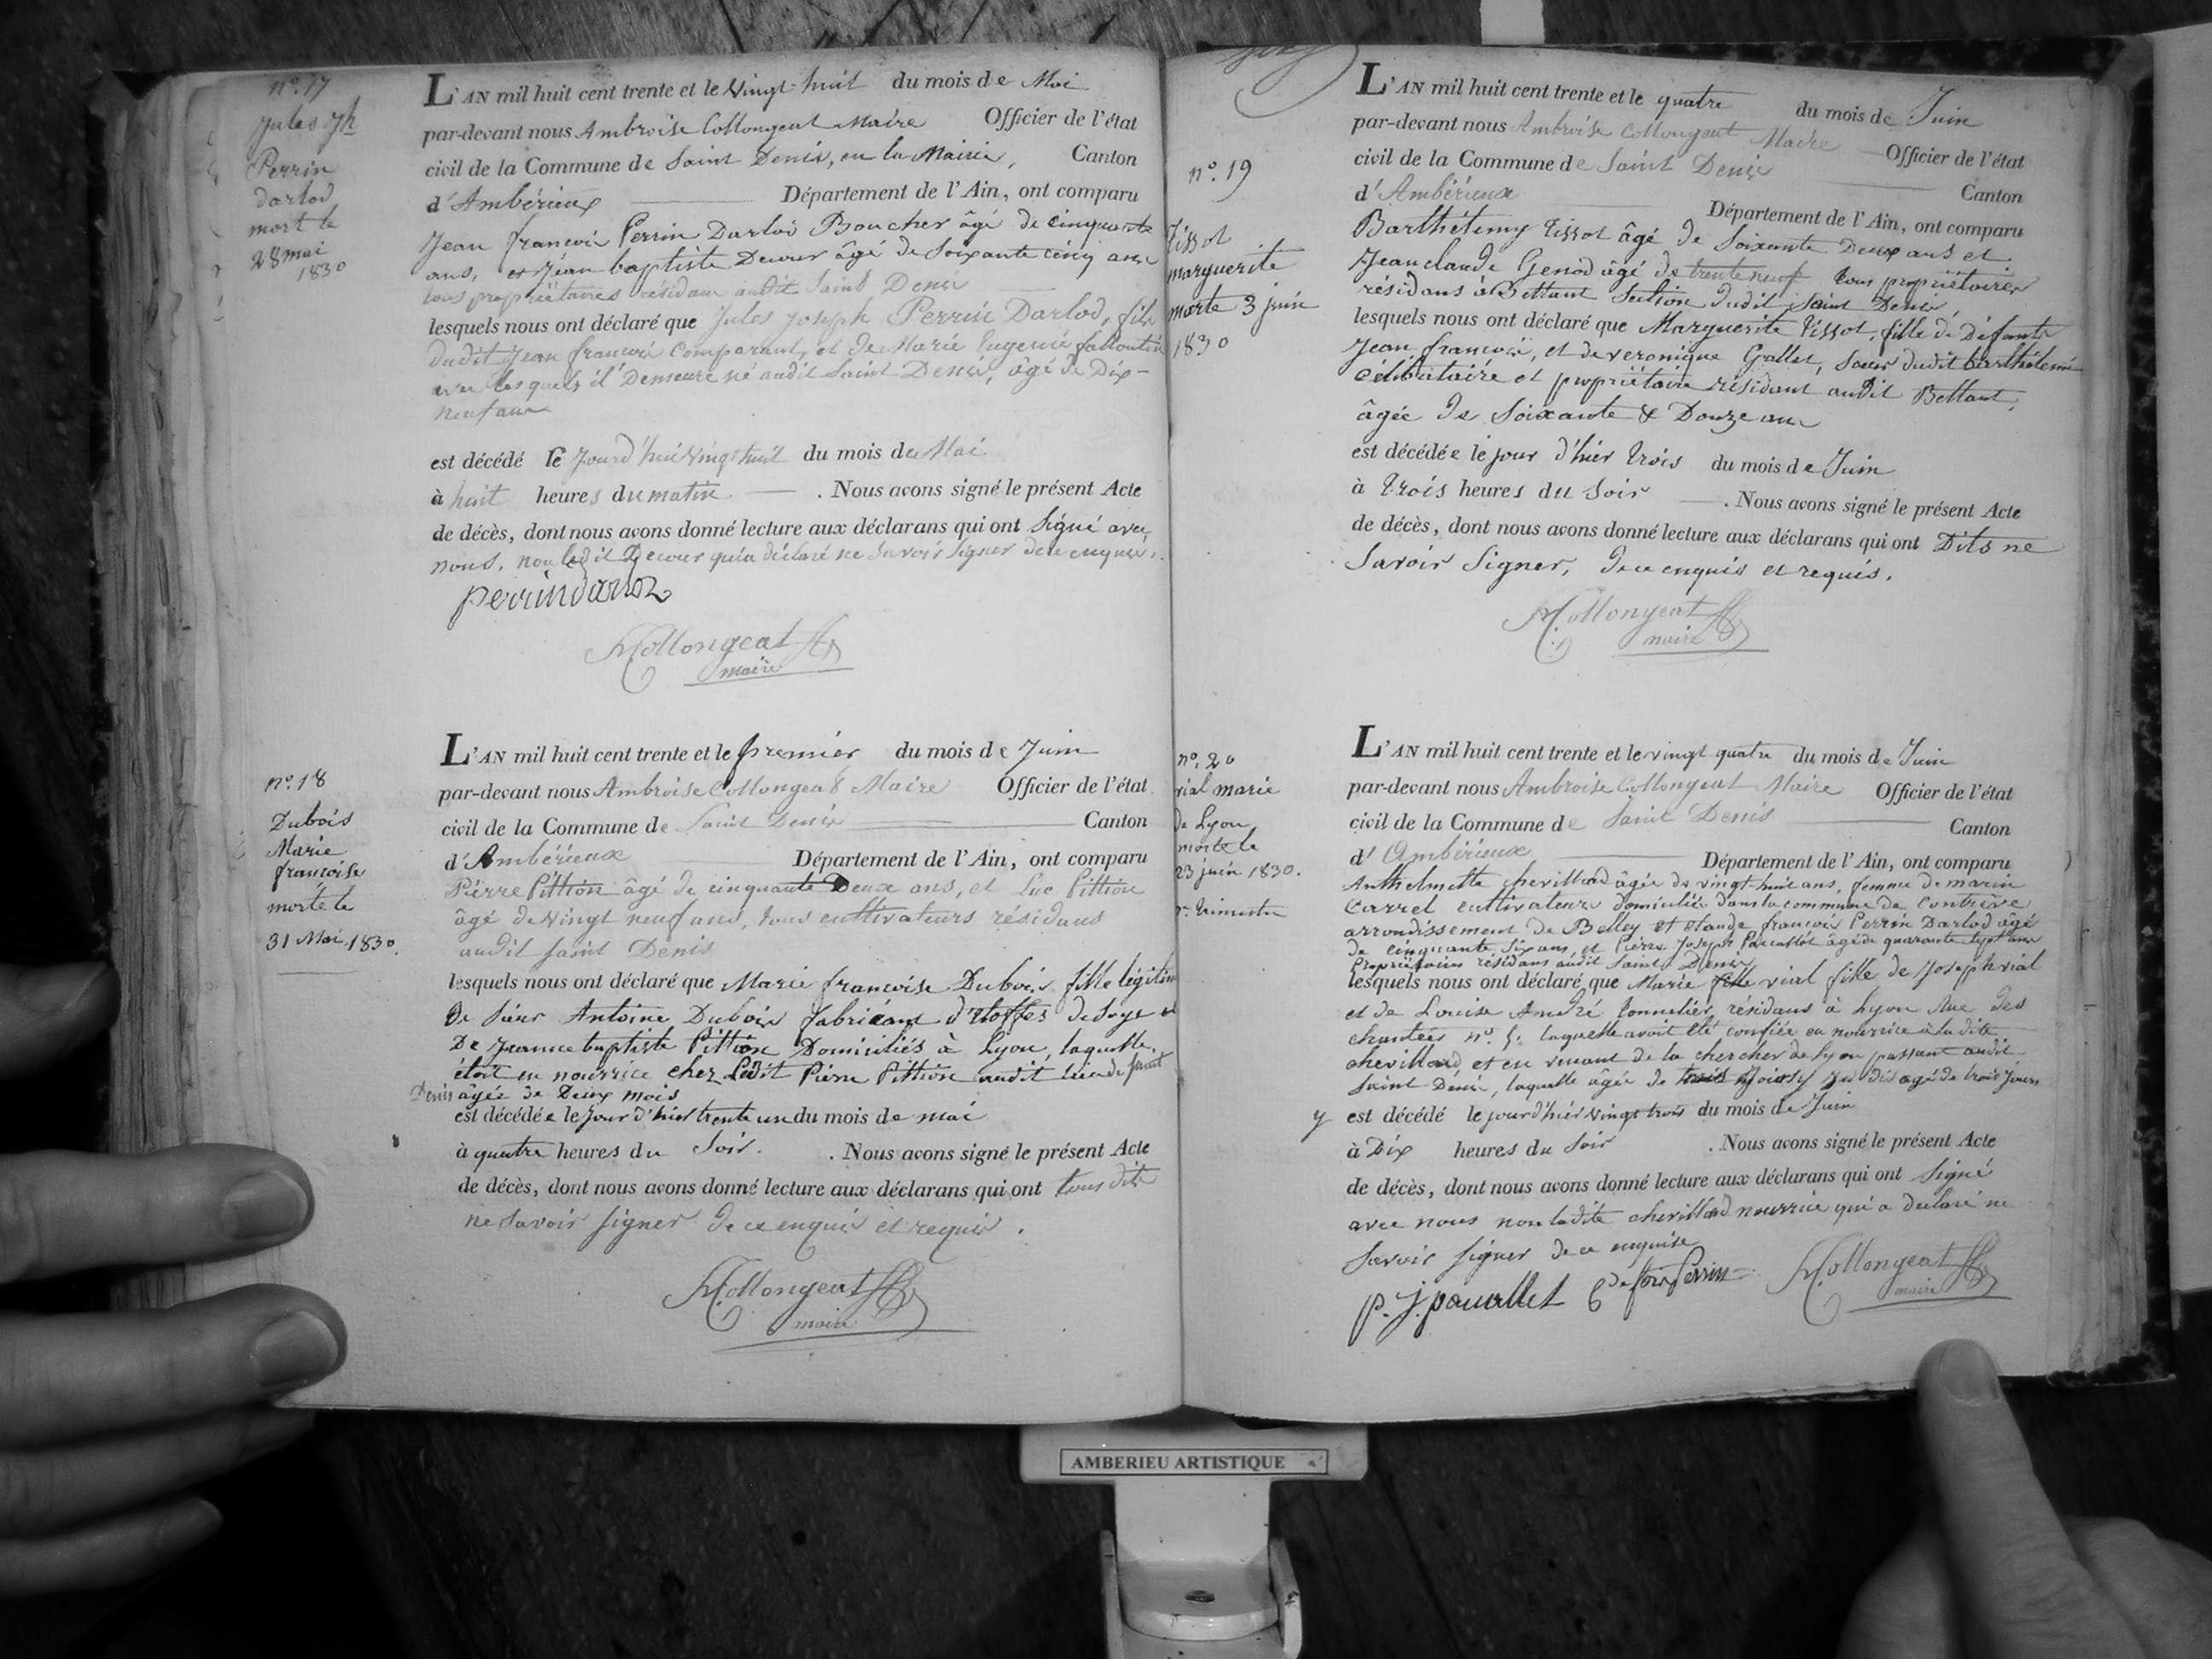 n° 17
Jules Jh
Perrin
darlod
mort le
28 mai
1830
L'AN mil huit cent trente et le vingt-huit du mois de Mai
par-devant nous Ambroise Collongeat Maire Officier de l'état
civil de la Commune de Saint Denis, en la Mairie, Canton
d'Ambérieux Département de l'Ain, ont comparu
Jean françois Perrin Darlod Boucher âgé de cinquante
ans, et Jéan baptiste Decour âgé de Soixante cinq ans
tous propriétaires résidans audit Saint Denis
lesquels nous ont déclaré que Jules Joseph Perrin Darlod, fils
dudit Jean françois comparant, et de Marie Eugenie
avec lesquels il Demeure né audit Saint Denis, âgé de Dix-
neuf ans
est décédé le Jourd'hui vingt huit du mois de Mai
à huit heures du matin . Nous avons signé le présent Acte
de décès, dont nous avons donné lecture aux déclarans qui ont signé avec
nous, non ledit Decour qui a déclaré ne savoir signer de ce enquis.
perrindarloz
Collongeat
maire
n° 18
Dubois
Marie
françoise
morte le
31 Mai 1830.
L'AN mil huit cent trente et le premier du mois de Juin
par-devant nous Ambroise Collongeat Maire Officier de l'état
civil de la Commune de Saint Denis Canton
d'Ambérieux Département de l'Ain, ont comparu
Pierre Pittion âgé de cinquante Deux ans, et Luc Pittion
âgé de vingt neuf ans, tous cultivateurs résidans
audit Saint Denis
lesquels nous ont déclaré que Marie françoise Dubois fille légitime
de Sieur Antoine Dubois fabricant d'étoffes de Soye et
De Jeanne baptiste Pittion Domiciliés à Lyon, laquelle
étoit en nourrice chez Ledit Pierre Pittion audit lieu de Saint
Denis âgée de Deux mois
est décédée le Jour d'hier trente un du mois de mai
à quatre heures du Soir. . Nous avons signé le présent Acte
de décès, dont nous avons donné lecture aux déclarans qui ont tous dits
ne savoir signer de ce enquis et requis.
Collongeat
maire
n° 19
Tissot
marguerite
morte 3 juin
1830
L'AN mil huit cent trente et le quatre du mois de Juin
par-devant nous Ambroise Collongeat Maire Officier de l'état
civil de la Commune de Saint Denis Canton
d'Ambérieux Département de l'Ain, ont comparu
Barthélemy Tissot âgé de Soixante Deux ans et
Jean claude Genod âgé de trente neuf tous propriétaires
résidans à Bettant Section dudit Saint Denis
lesquels nous ont déclaré que Marguerite Tissot, fille de Défunts
Jean françois, et de veronique Gallet, Soeur dudit barthélemi
célibataire et propriétaire résidant audit Bettant,
âgée de Soixante & Douze ans
est décédée le jour d'hier trois du mois de Juin
à trois heures du Soir . Nous avons signé le présent Acte
de décès, dont nous avons donné lecture aux déclarans qui ont Dits ne
Savoir Signer, de ce enquis et requis.
Collongeat
maire
n° 20
vial marie
de Lyon
morte le
23 juin 1830.
2e trimestre
L'AN mil huit cent trente et le vingt quatre du mois de Juin
par-devant nous Ambroise Collongeat Maire Officier de l'état
civil de la Commune de Saint Denis Canton
d'Ambérieux Département de l'Ain, ont comparu
Anthelmette chevillard âgée de vingt-huit ans, femme de marin
Carrel cultivateurs domiciliés dans la commune de Contrève
arrondissement de Belley et Claude françois Perrin Darlod âgé
de cinquante Six ans, et Pierre Joseph âgé de quarante Sept ans
Propriétaires résidans audit Saint Denis
lesquels nous ont déclaré que Marie fille vial fille de Joseph vial
et de Louise André tonnelier résidans à Lyon Rue des
n° 5. laquelle avoit été confiée en nourrice à ladite
chevillard, et en venant de la chercher de Lyon passant audit
Saint Denis, laquelle âgée de trois âgé de trois Jours
y est décédé le jour d'hier vingt trois du mois de Juin
à Dix heures du Soir . Nous avons signé le présent Acte
de décès, dont nous avons donné lecture aux déclarans qui ont signé
avec nous non ladite chevillard nourrice qui a déclaré ne
Savoir Signer de ce enquise
p. j. pauallet Cde fois Perrin Collongeat
maire
AMBERIEU ARTISTIQUE